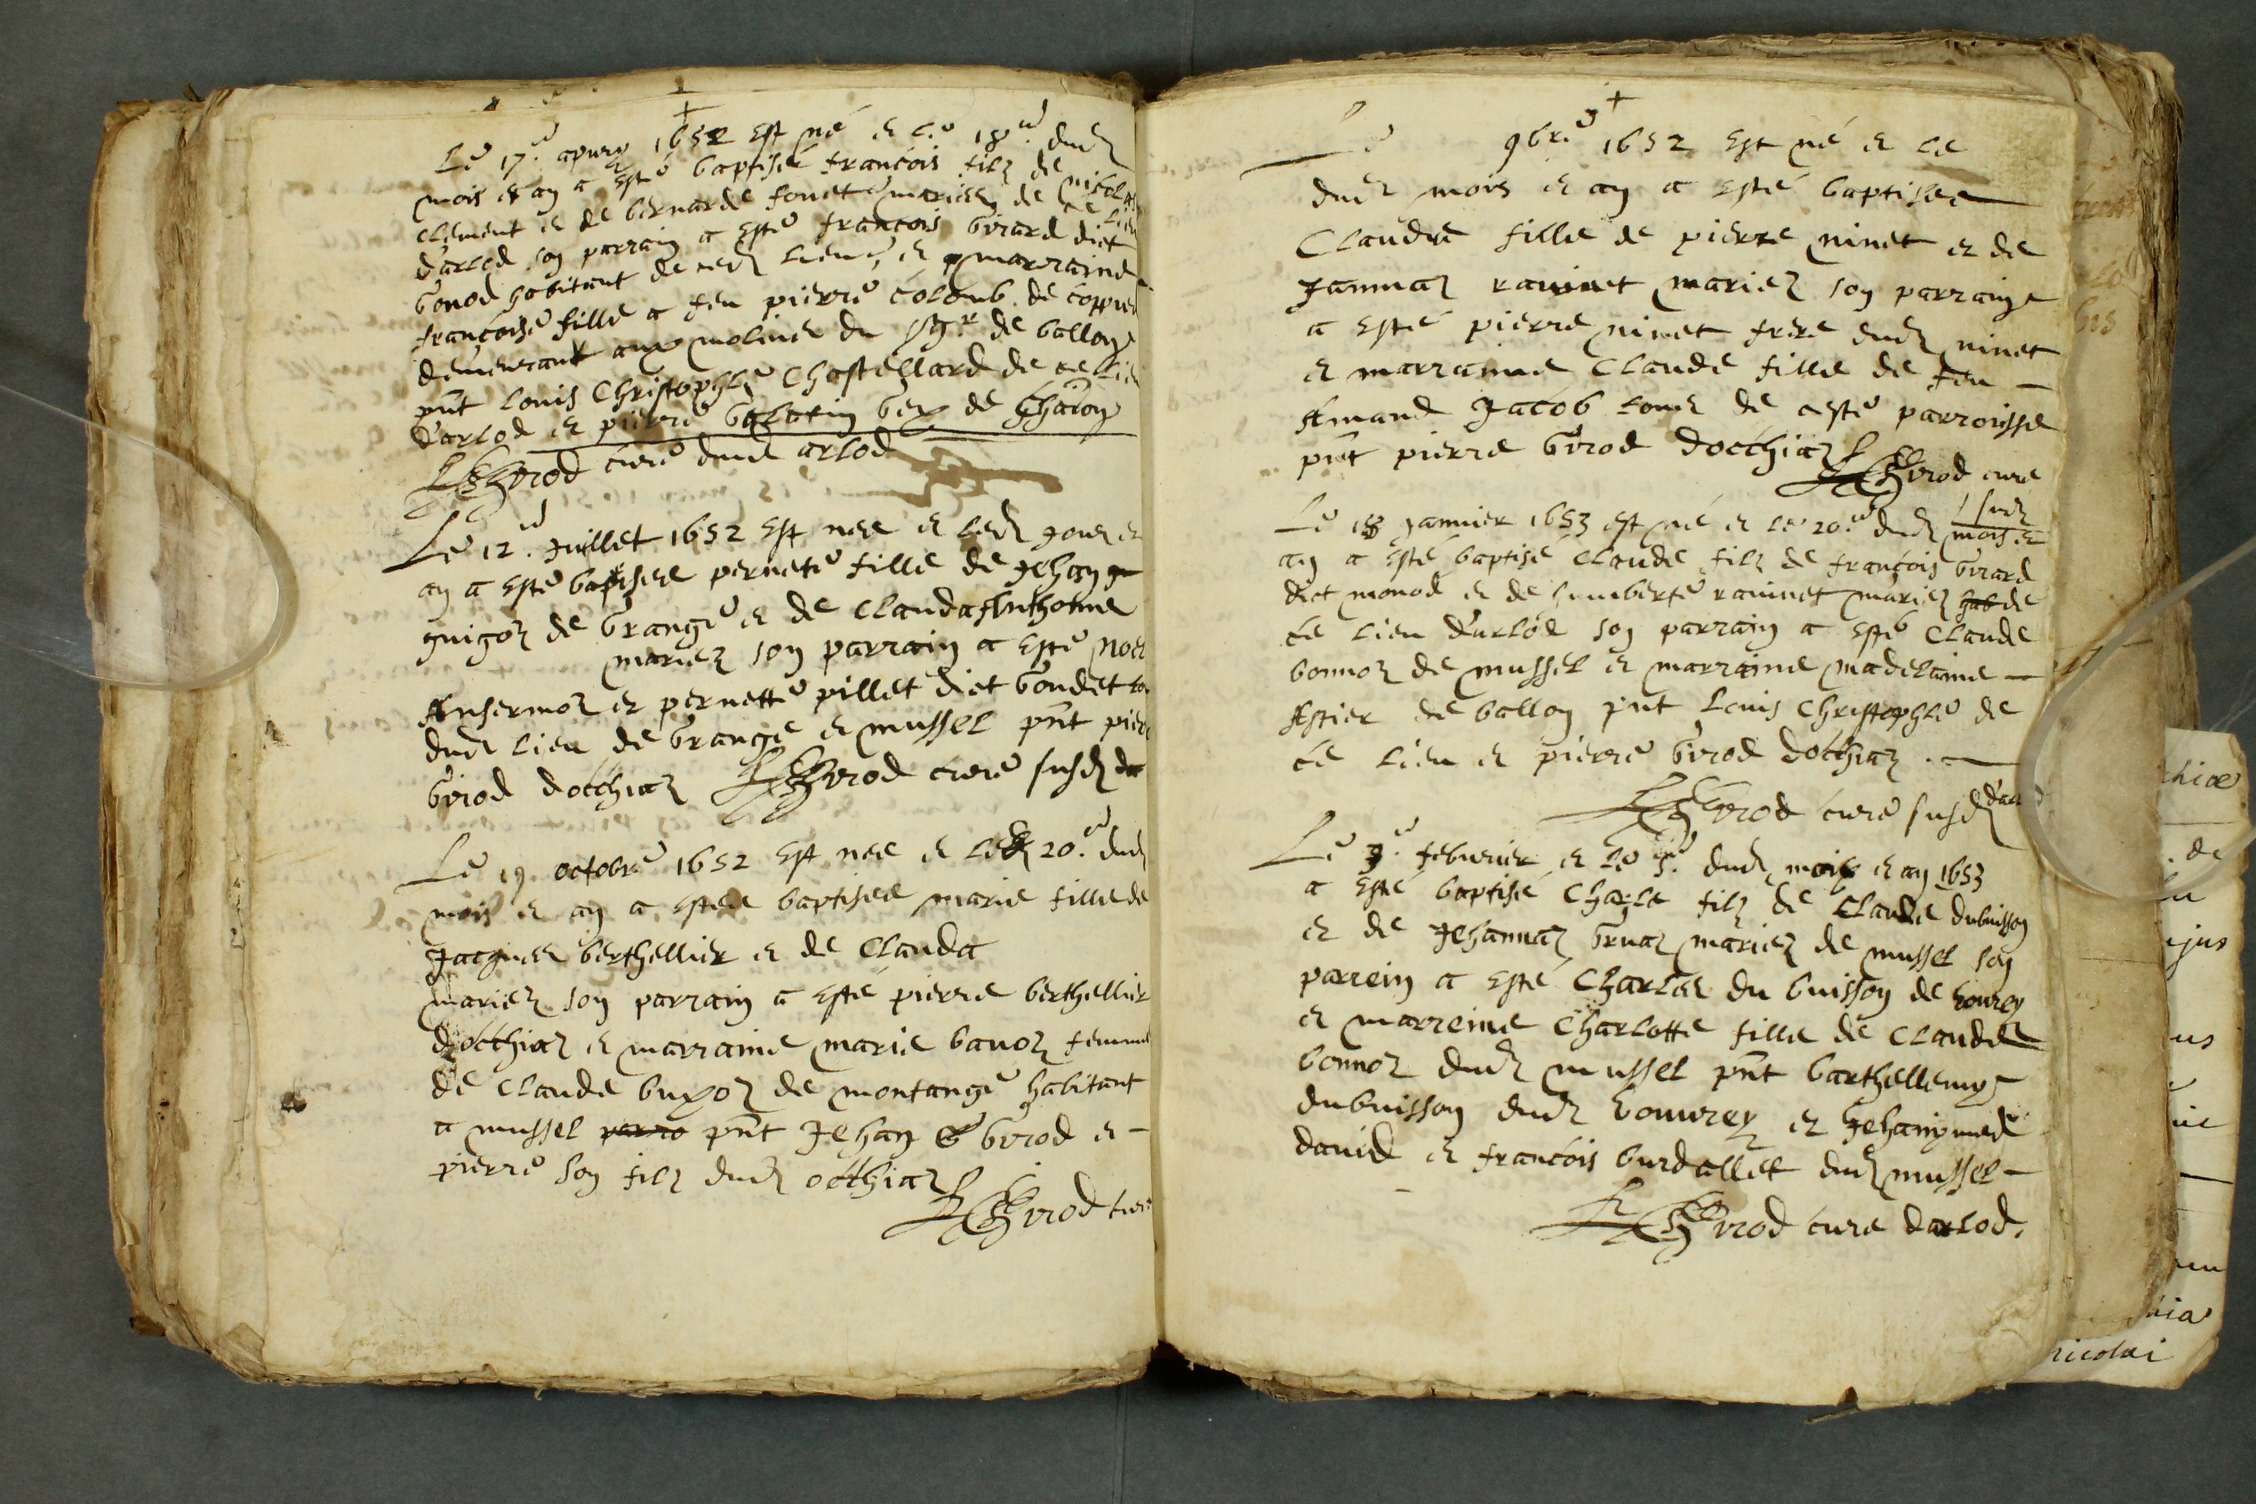 Le 17.e apuril 1652 Est né et Le 18.e dud
mois et an a Esté baptisé francois filz de
Clement et de bernarde fouet mariez de ce lieu
darlod son parrain a esté francois Girard dict
Gonod habitant de ced lieu, et marraine
francoise fille a feu pierre colomb de
demeurant aux moline du sgr de ballon
pnt Louis Christophle Chastellard de ce lieu
darlod et pierre de
Girod cure dud arlod
Le 12.e Juillet 1652 Est nee et led jour et
an a esté baptisee pernete fille de Jehan
guigoz de Grange et de Clauda Anthoine
mariez son parrain a esté noel
Ansermoz et pernette pillet dict Goudet
dud lieu de Grange et mussel pnt pierre
Girod docthiaz Girod cure susd
Le 19 octobre 1652 Est nee et led 20.e dud
mois et an a estee baptisee marie fille de
Jacques berthellier et de Clauda
mariez son parrain a esté pierre berthellier
docthiaz et marraine marie bauoz femme
de Claude buyoz de montange habitant
a mussel parro pnt Jehan Girod et
pierre son filz dud octhiaz
Girod cure
Le 9bre 1652 Est né et le
dud mois et an a esté baptisee
Claudre fille de pierre ninet et de
Jannaz rauinet mariez son parrain
a esté pierre ninet frere dud ninet
et marraine Claude fille de feu
Amand Jacob tous de ceste parroisse
pnt pierre Girod docthiaz
Girod cure
Le 18 Januier 1653 est né et le 20.e dud mois et
susd
an a esté baptisé Claude filz de francois Girard
dict monod et de humberte rauinet mariez hab de
ce lieu d'arlod son parrain a esté Claude
bonnoz de mussel et marraine madelaine
Astier de ballon pnt Louis Christophle de
ce lieu et pierre Girod docthiaz
Girod cure susd d'arlod
Le 3.e feburier et le 5.e dud mois et an 1653
a esté baptisé Charle filz de Claude dubuisson
et de Jehannaz Gruaz mariez de mussel son
parrein a esté Charles du buisson de
et marreine Charlotte fille de Claude
bonnoz dud mussel pnt barthellemy
dubuisson dud et
dauid et francois burdallet dud mussel
Girod cure darlod.
hiae
de
ejus
us
nicolai